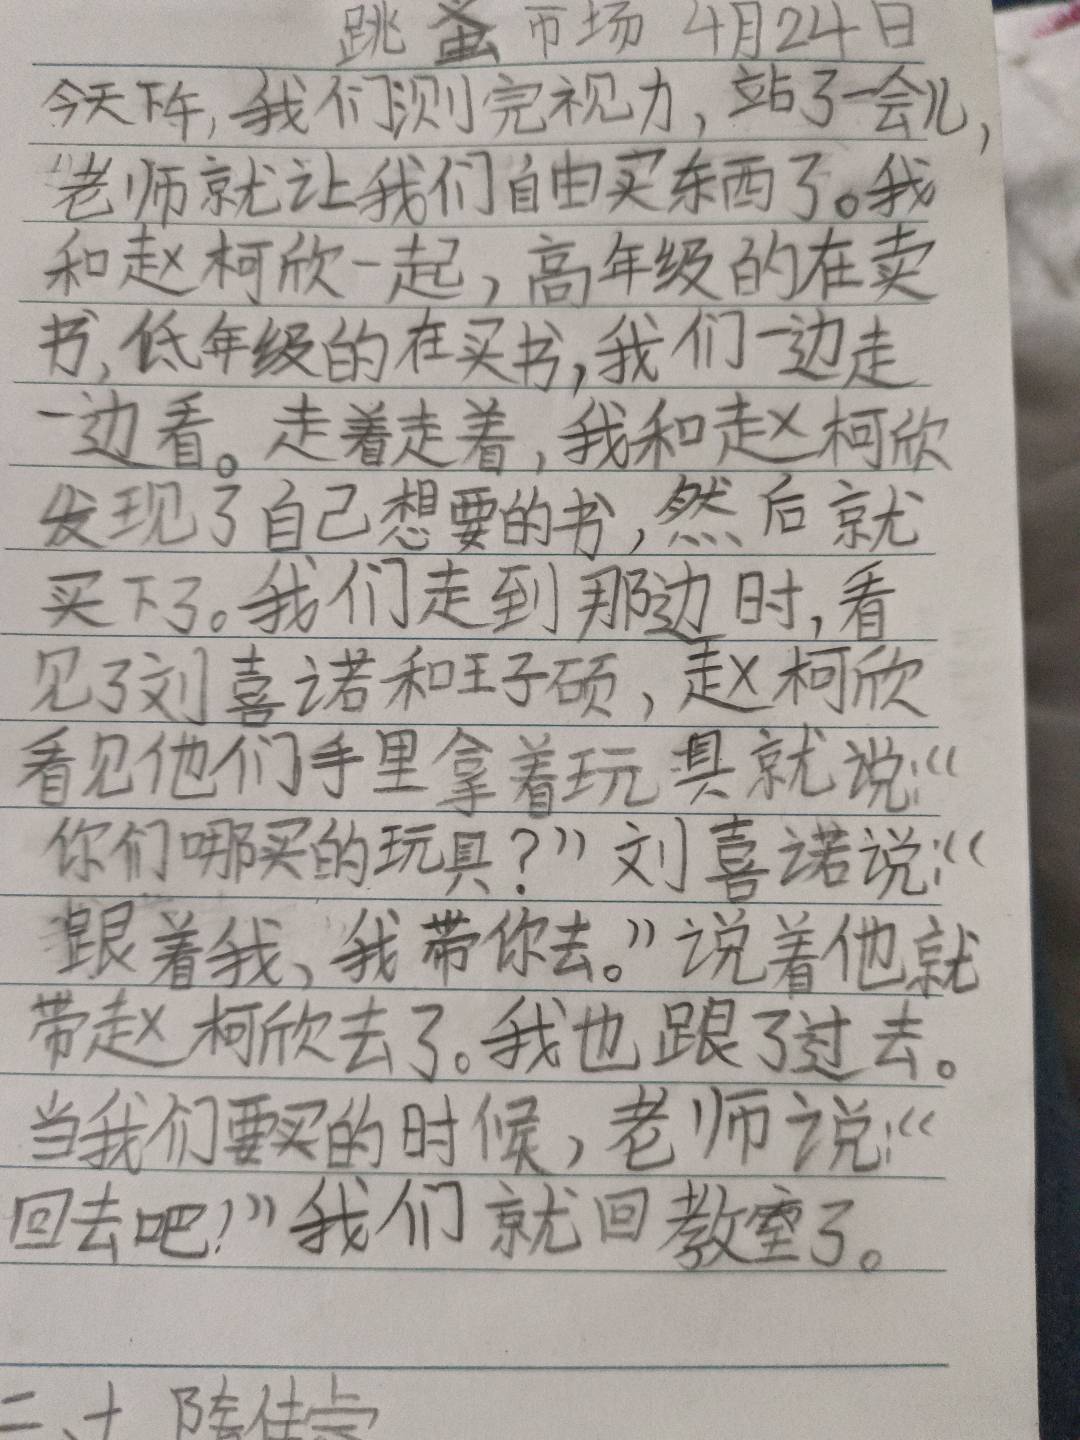 跳蚤市场 4月24日
今天下午,我们测完视力,站了一会儿,
老师就让我们自由买东西了。我
和赵柯欣一起,高年级的在卖
书,低年级的在买书,我们一边走
一边看。走着走着,我和赵柯欣
发现了自己想要的书,然后就
买下了。我们走到那边时,看
见了刘喜诺和王子硕,赵柯欣
看见他们手里拿着玩具就说:“
你们哪买的玩具?”刘喜诺说:“
跟着我、我带你去。”说着他就
带赵柯欣去了。我也跟了过去。
当我们要买的时候,老师说:“
回去吧!”我们就回教室了。
二、十